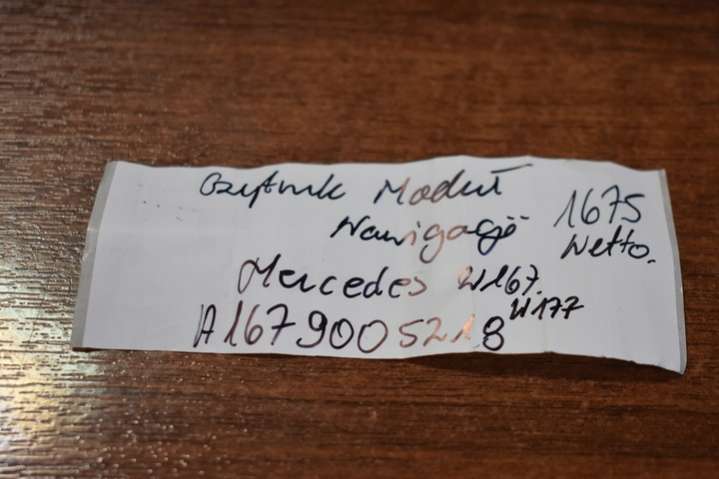 Czytnik Moduł
Nawigacje
1675
Netto.
Mercedes W167.
W177
A1679005218